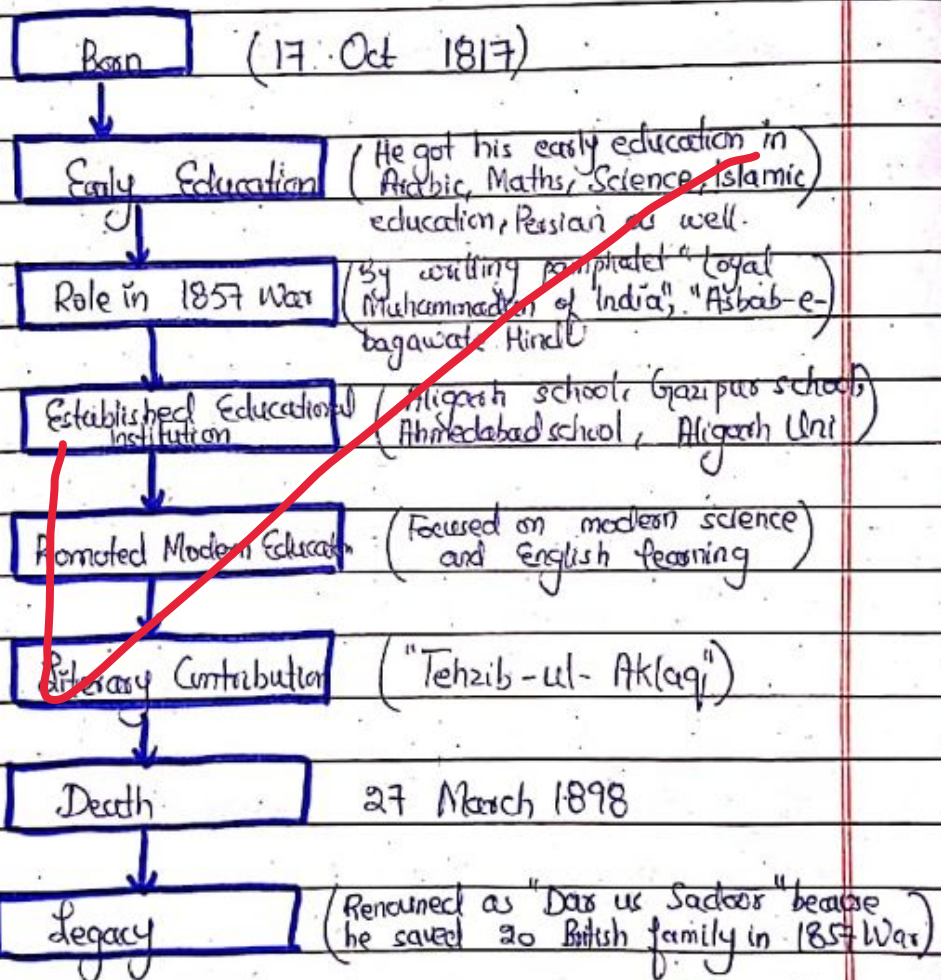 Born (17 Oct 1817)
Early Education (He got his early education in
Arabic, Maths, Science, Islamic)
education, Persian as well.
Role in 1857 War (By writing pamphalet "Loyal
Muhammadan of India", "Asbab-e-)
bagawate Hind"
Established Educational (Aligarh school, Gazipur school,)
Institution Ahmedabad school, Aligarh Uni
Promoted Modern Education (Focused on modern science)
and English learning
Literary Contribution ("Tehzib-ul-Aklaq")
Death 27 March 1898
Legacy (Renouned as "Dar us Sadoor" because
he saved 20 British family in 1857 War)